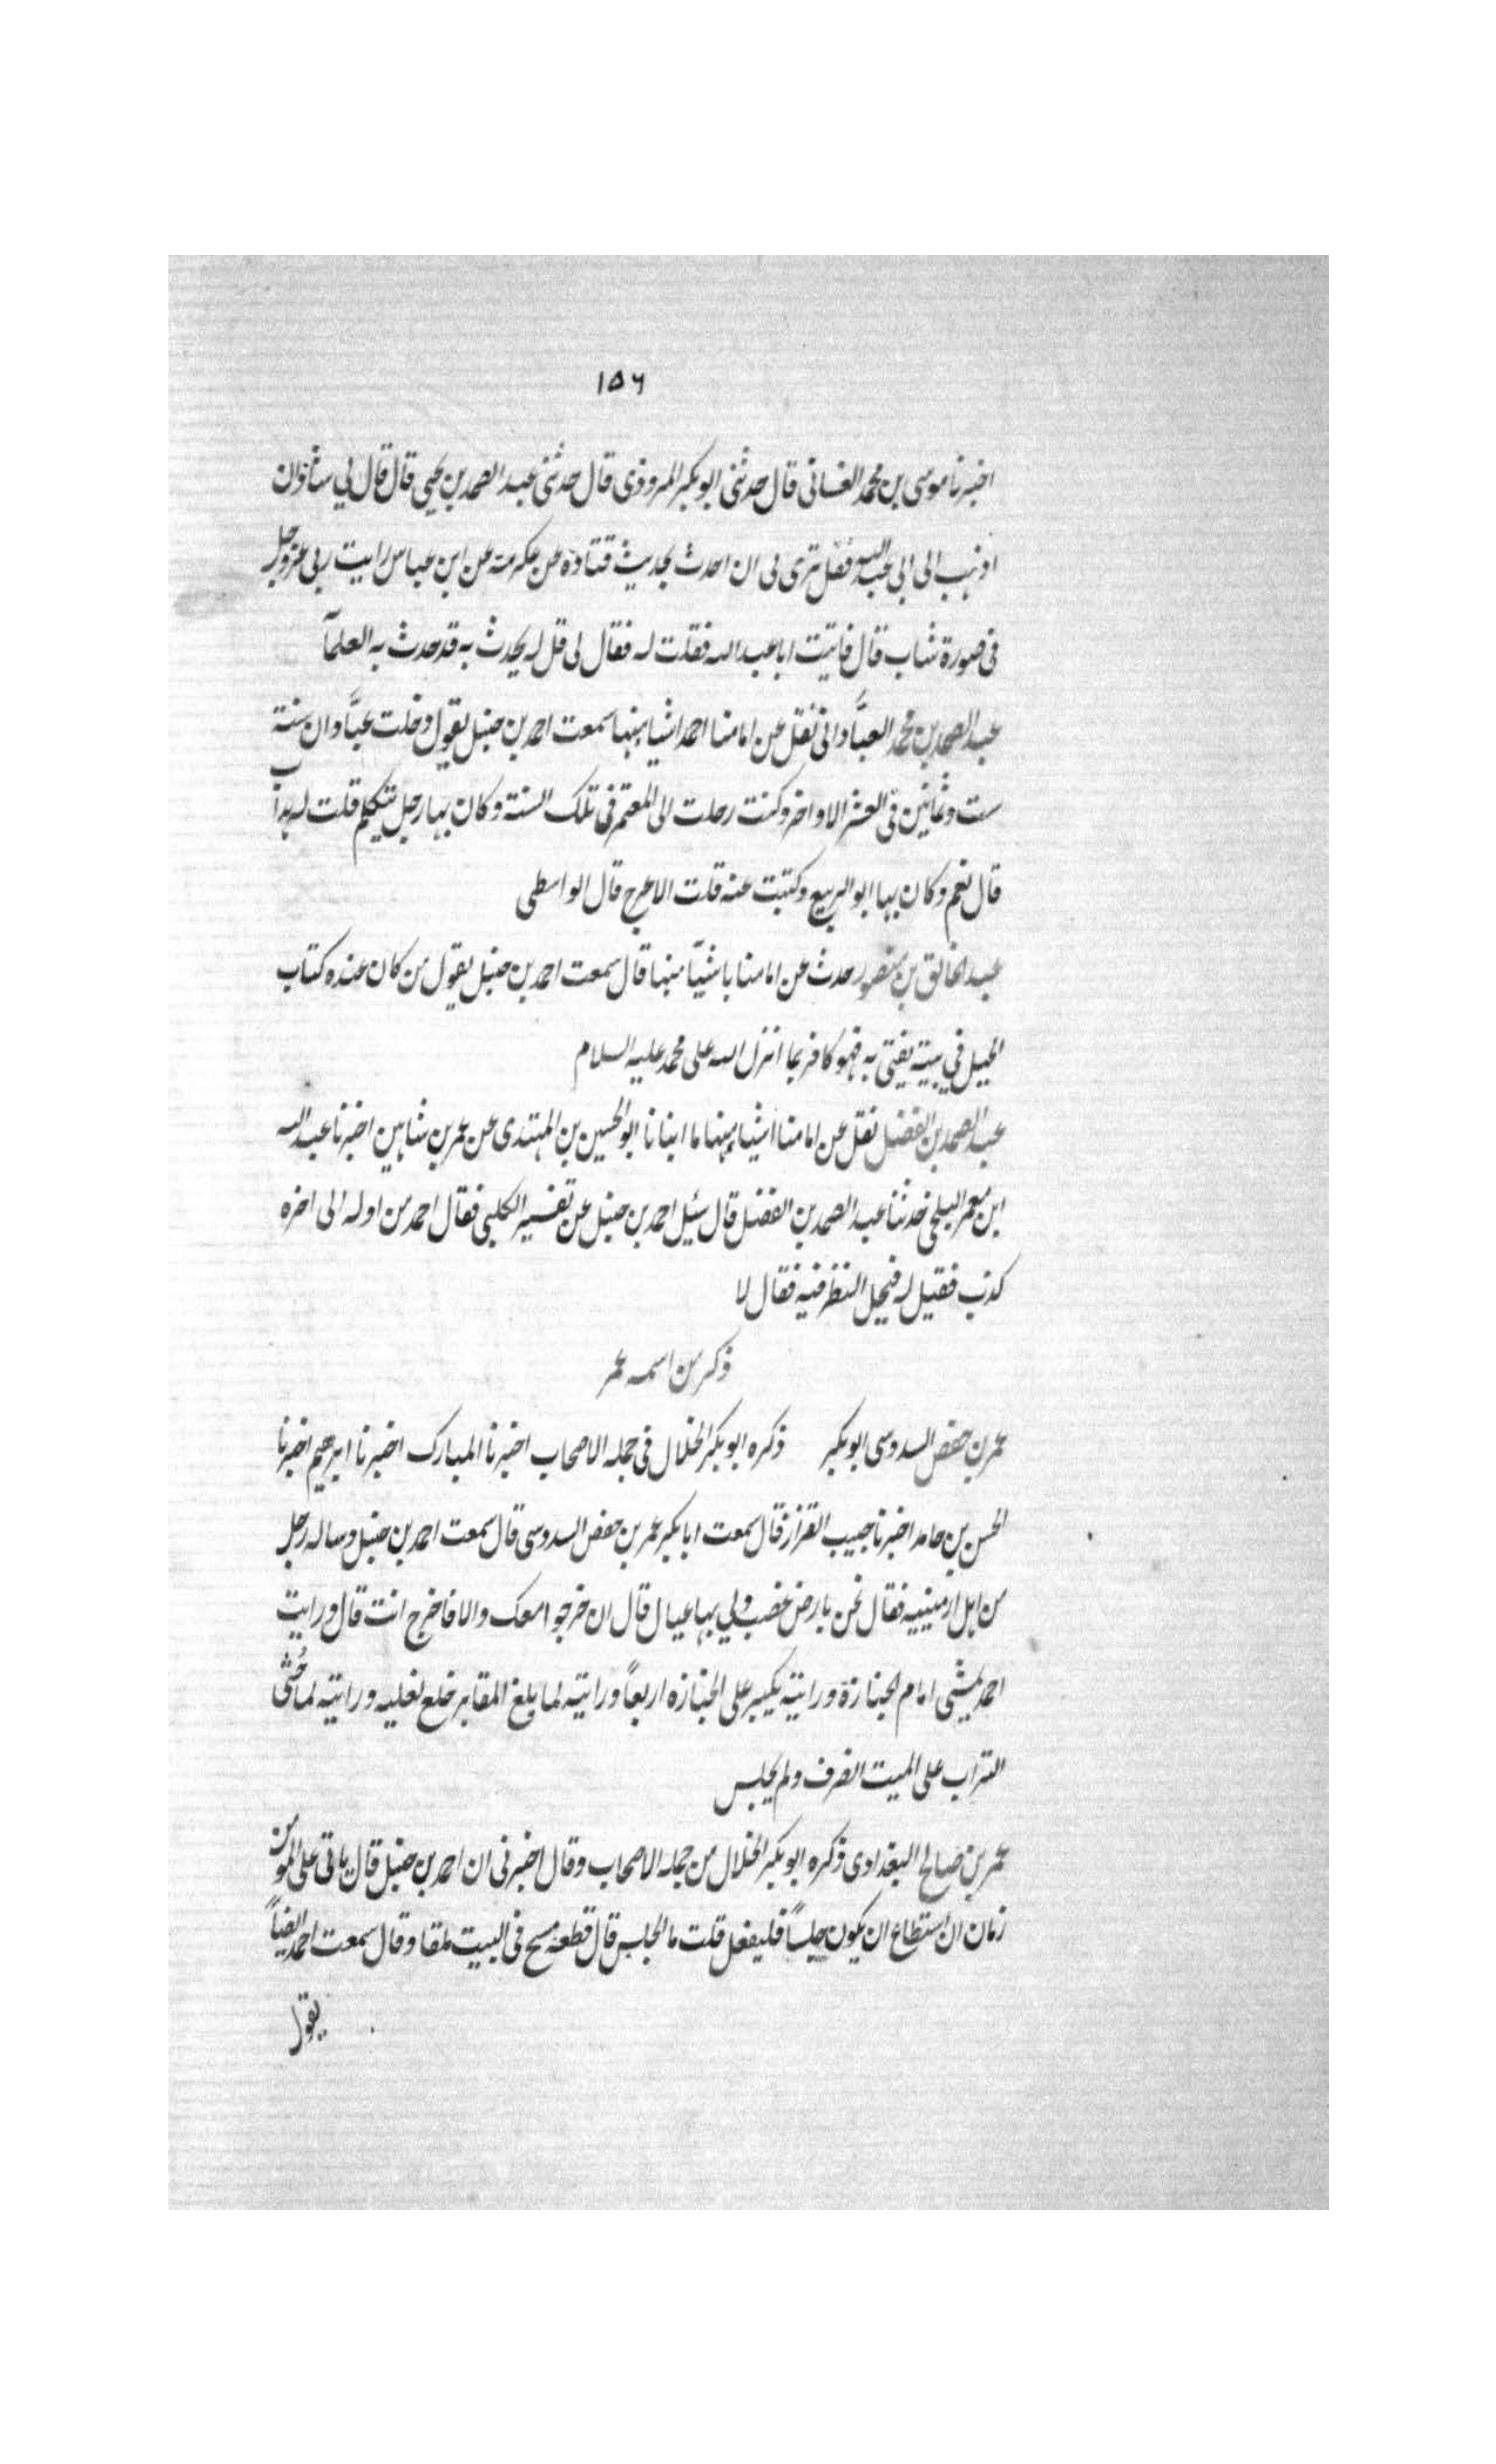 ١٥٦
اخبرنا موسى بن محمد الغسانى قال حدثنى ابو بكر المروذى قال حدثنى عبد الصمد بن يحيى قال قال لي شاذان
اذهب الى ابى عبد الله فقل ترى لى ان احدث بحديث قتادة عن عكرمة عن ابن عباس رايت ربى عزوجل
فى صورة شاب قال فاتيت ابا عبد الله فقلت له فقال لى قل له يحدث به قد حدث به العلمآ
عبد الصمد بن محمد العبَّادانى نقل عن امامنا احمد اشيا منها سمعت احمد بن حنبل يقول دخلت عبَّادان سنة
ست وثمانين فى العشر الاواخر وكنت رحلت الى المعتمر فى تلك السنة وكان بها رجل يتكلم قلت له هداب
قال نعم وكان بها ابو الربيع وكتبت عنه قلت الاعرج قال الواسطى
عبد الخالق بن منصور حدث عن امامنا باشيّا منها قال سمعت احمد بن حنبل يقول من كان عنده كتاب
الحيل في بيته يفتى به فهو كافر بما انزل الله على محمد عليه السلام
عبد الصمد بن الفضل نقل عن امامنا اشياء منها ما انبانا ابو الحسين بن المهتدى عن عمر بن شاهين اخبرنا عبد الله
ابن معمر البلخى حدثنا عبد الصمد بن الفضل قال سئل احمد بن حنبل عن تفسير الكلبى فقال احمد من اوله الى اخره
كذب فقيل له فيحل النظر فيه فقال لا
ذكر من اسمه عمر
عمر بن حفص السدوسى ابو بكر ذكره ابو بكر الخلال فى جمله الاصحاب اخبرنا المبارك اخبرنا ابرهيم اخبرنا
الحسن بن حامد اخبرنا حبيب القزاز قال سمعت ابا بكر عمر بن حفص السدوسى قال سمعت احمد بن حنبل وساله رجل
من اهل ارمينيه فقال نحن بارض غضب ولي بها عيال قال ان خرجوا معك والا فاخرج انت قال ورايت
احمد يمشى امام الجنازة ورايته يكبر على الجنازه اربعاً ورايته لما بلغ المقابر خلع نعليه ورايته لما حُثى
التراب على الميت انصرف ولم يجلس
عمر بن صالح البغدادى ذكره ابو بكر الخلال من جمله الاصحاب وقال اخبرنى ان احمد بن حنبل قال ياتى على المؤمن
زمان ان استطاع ان يكون حلساً فليفعل قلت ما الحلس قال قطعة مسح فى البيت ملقا وقال سمعت احمد ايضاً
يقول